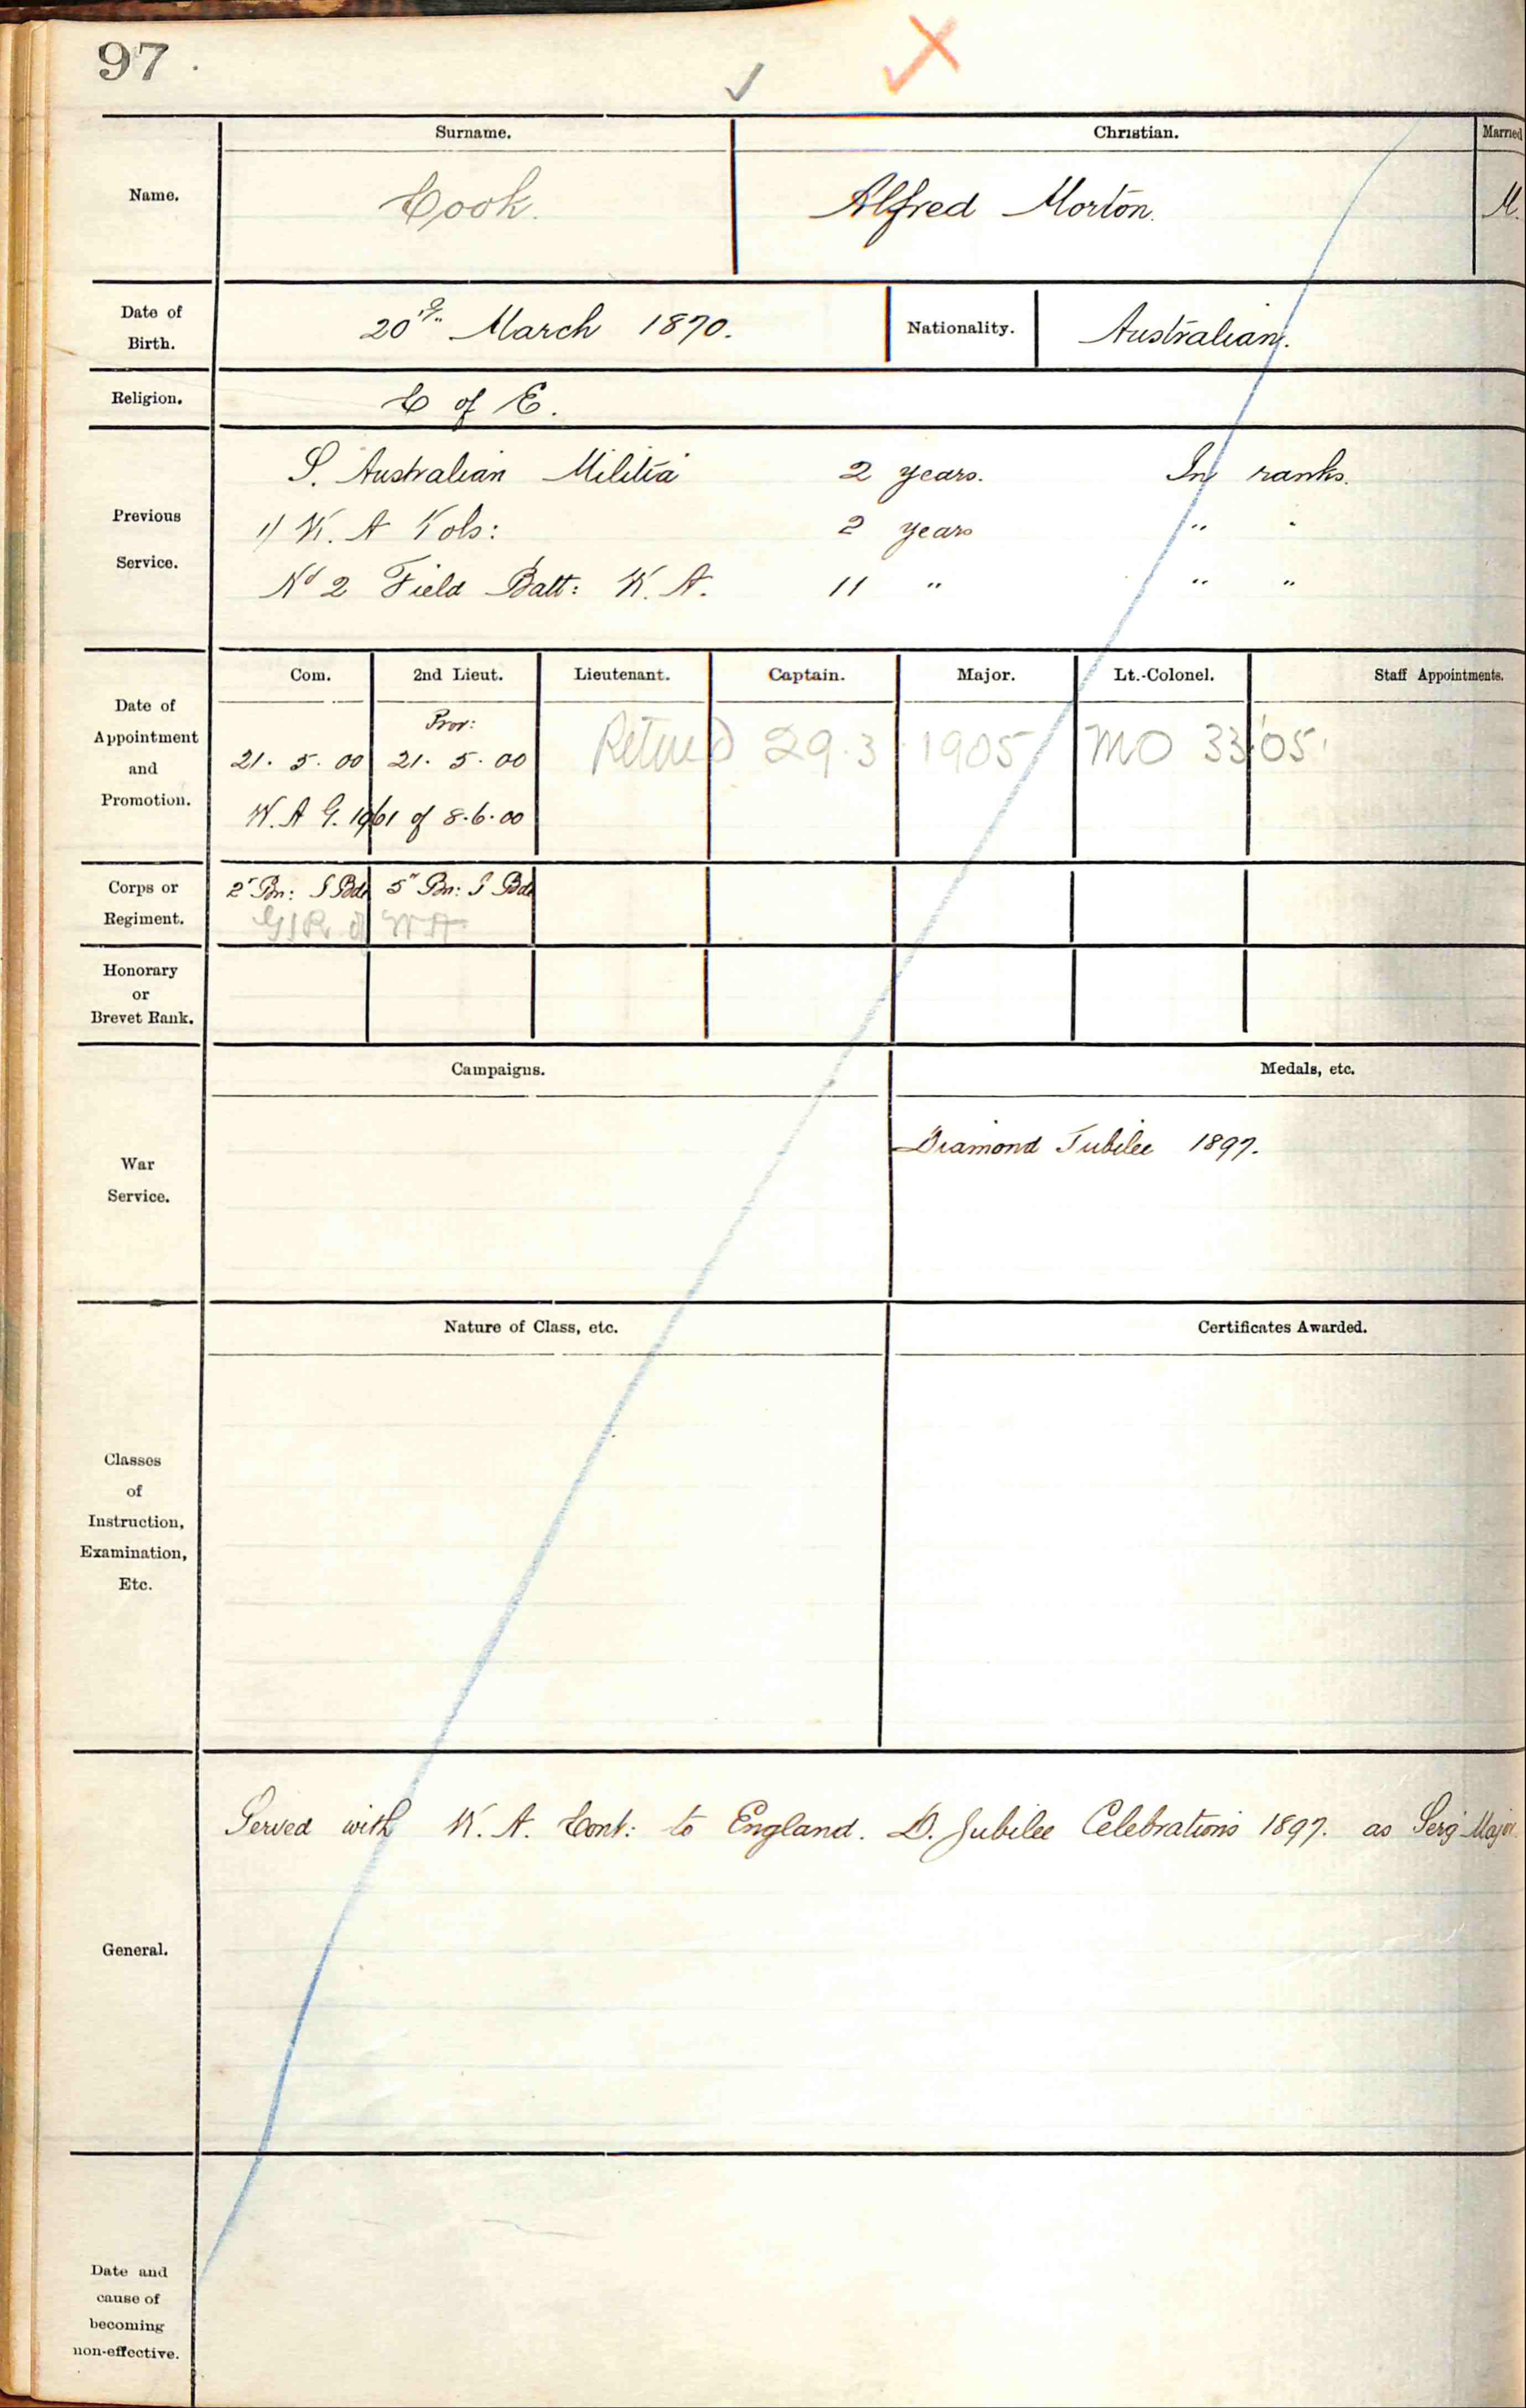 97.
Surname. Christian. Married
Name. Cook. Alfred Morton. M.
Date of Birth. 20th March 1870. Nationality. Australian.
Religion. C of E.
S. Australian Militia 2 years. In ranks.
Previous Service.
W. A Vols: 2 years " "
No 2 Field Batt: W. A. 11 " " "
Com. 2nd Lieut. Lieutenant. Captain. Major. Lt.-Colonel. Staff Appointments.
Date of Appointment and Promotion.
Prov:
21. 5. 00 21. 5. 00 Retired 29.3.1905 MO 33/05.
W. A G. 1961 of 8.6.00
Corps or Regiment. 2nd Bn: I Bde 5th Bn: I Bde
G I R of W A
Honorary or Brevet Rank.
Campaigns. Medals, etc.
War Service. Diamond Jubilee 1897.
Nature of Class, etc. Certificates Awarded.
Classes of Instruction, Examination, Etc.
Served with W. A. Cont: to England. D. Jubilee Celebrations 1897. as Serg Major
General.
Date and cause of becoming non-effective.